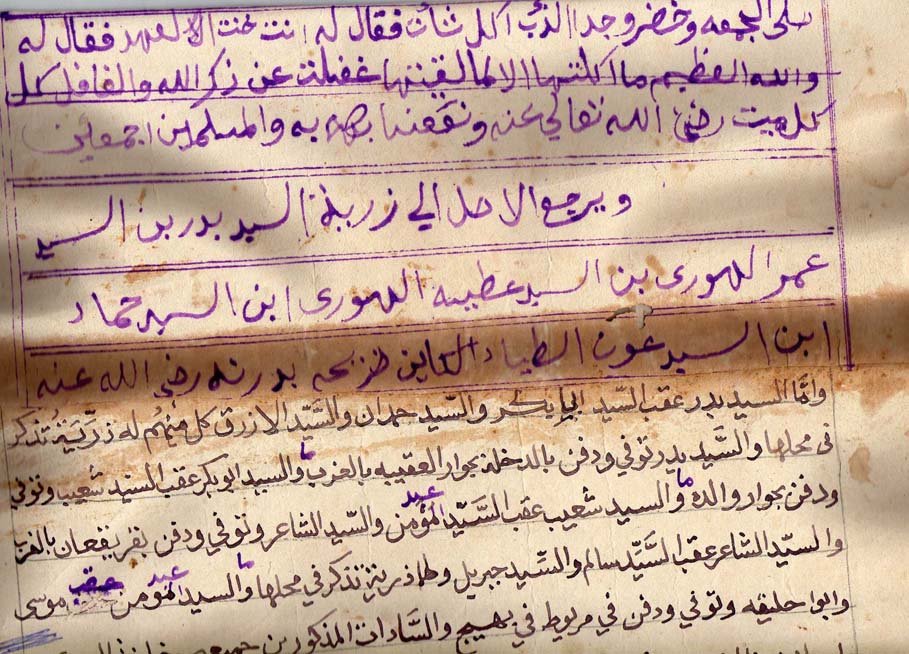 صلى الجمعه وحضر وجد الذئب اكل شاة فقال له انت تحت الالعهد فقال له
والله العظيم ما اكلتها الا لما لقيتها غفلت عن ذكر الله والغافل كل
كل ميت رضي الله تعالى عنه ونفعنا به والمسلمين اجمعين
ويرجع الاصل الي زرية السيد بدر بن السيد
عمر اللهورى بن السيد عطيه اللهورى ابن السيد حماد
ابن السيد عون الطيار الكاين ضريحه بدرنه رضي الله عنه
وامَّا السيد بدر عقب السيّد ابي بكر والسّيد حمدان والسَّيّد الازرق كل منهُم له ذرّيَة تُذكر
في محلها والسَّيد بدر توفي ودفن بالدخلة بجوار العقيبه بالغرب ما والسيد ابو بكر عقب السيد شُعيب وتوفي
ودفن بجوار والده ما والسيد شعيب عقب السَّيّد عبد المؤمن والسّيد الشاعر وتوفي ودفن بالغرب
والسيّد الشاعر عقب السَّيّد سالم والسَّيد جبريل ولها ذرية تذكر في محلها ما والسيد عبد المؤمن عقب موسى
وابوا حليقه وتوفي ودفن في مريوط في بهيج والسَّادات المذكورين